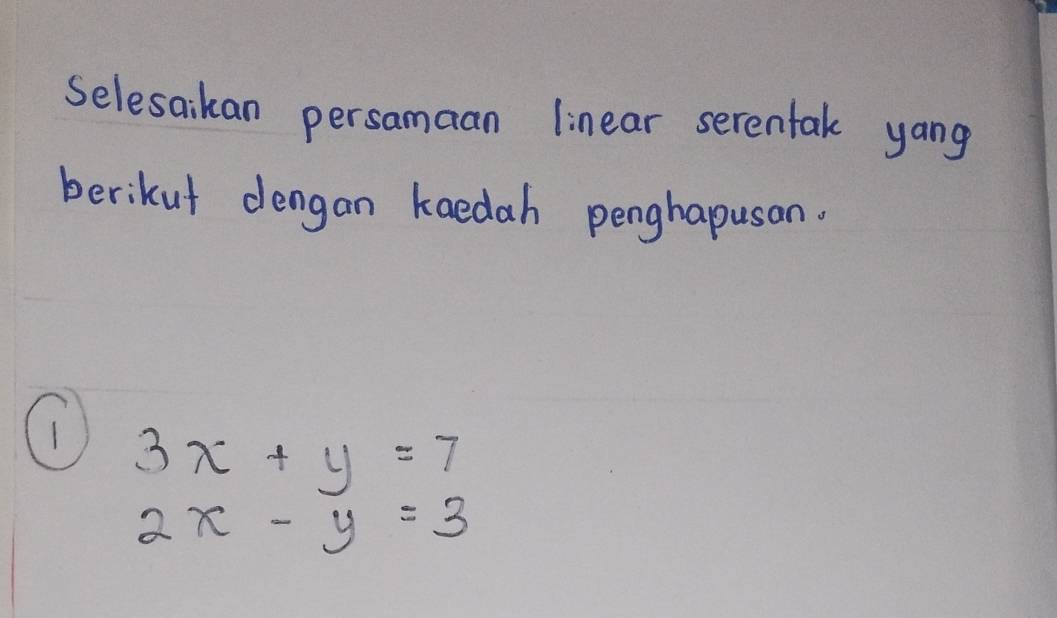 Selesaikan persamaan linear serentak yang
berikut dengan kaedah penghapusan.
① 3x + y = 7
2x - y = 3